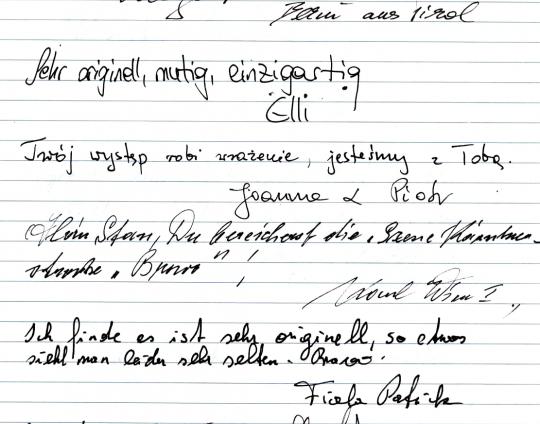 aus Tirol
Sehr originell, mutig, einzigartig
Elli
Twój występ robi wrażenie, jesteśmy z Tobą.
Joanna & Piotr
Stan, Du bereicherst die "Szene Kärntner-
strasse". "Bravo"!
Karl Wien I.,
Ich finde es ist sehr originell, so etwas
sieht man leider sehr selten. Bravo.
Patrick